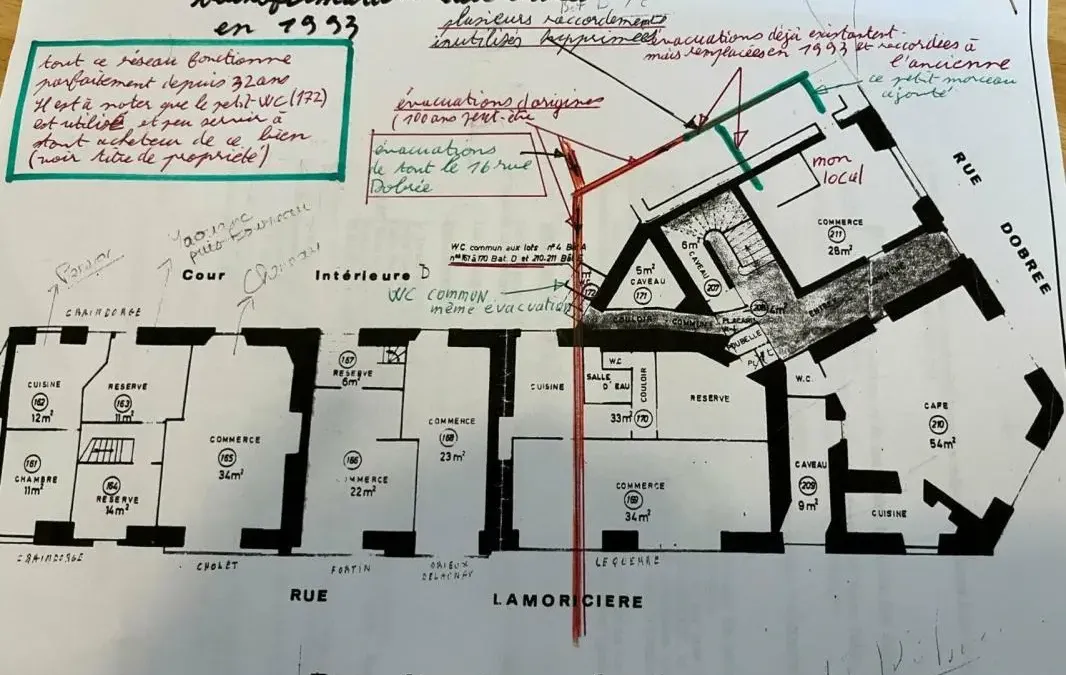 en 1993
plusieurs raccordements
inutilisés supprimés
évacuations déjà existantes
mais remplacées en 1993 et raccordées à
l'ancienne
ce petit morceau
ajouté
tout ce réseau fonctionne
parfaitement depuis 32 ans
Il est à noter que le petit WC (172)
est utilisé et peu servir à
tout acheteur de ce bien
(voir titre de propriété)
évacuations d'origines
(100 ans peut-être
évacuations
de tout le 16 rue
Dobrée
mon
local
RUE
DOBREE
COMMERCE
211
28m²
W.C. commun aux lots n°4 Bât A
n°s 161 à 170 Bat. D et 210-211 Bât E
WC commun
même évacuation
Cour Intérieure D
puis
GRAINDORGE
6m²
CAVEAU
207
5m²
CAVEAU
171
172
COULOIR COMMUNE
PLACARD
208
4m²
ENTREE
POUBELLE
W.C.
CUISINE
162
12m²
RESERVE
163
11m²
161
CHAMBRE
11m²
164
RESERVE
14m²
COMMERCE
165
34m²
167
RESERVE
6m²
166
COMMERCE
22m²
COMMERCE
168
23m²
CUISINE
W.C.
SALLE
D'EAU
COULOIR
33m²
170
RESERVE
COMMERCE
169
34m²
W.C.
CAVEAU
209
9m²
CAFE
210
54m²
CUISINE
GRAINDORGE
CHOLET
FORTIN
ORIEUX
DELAUNAY
LEQUERRE
RUE LAMORICIERE